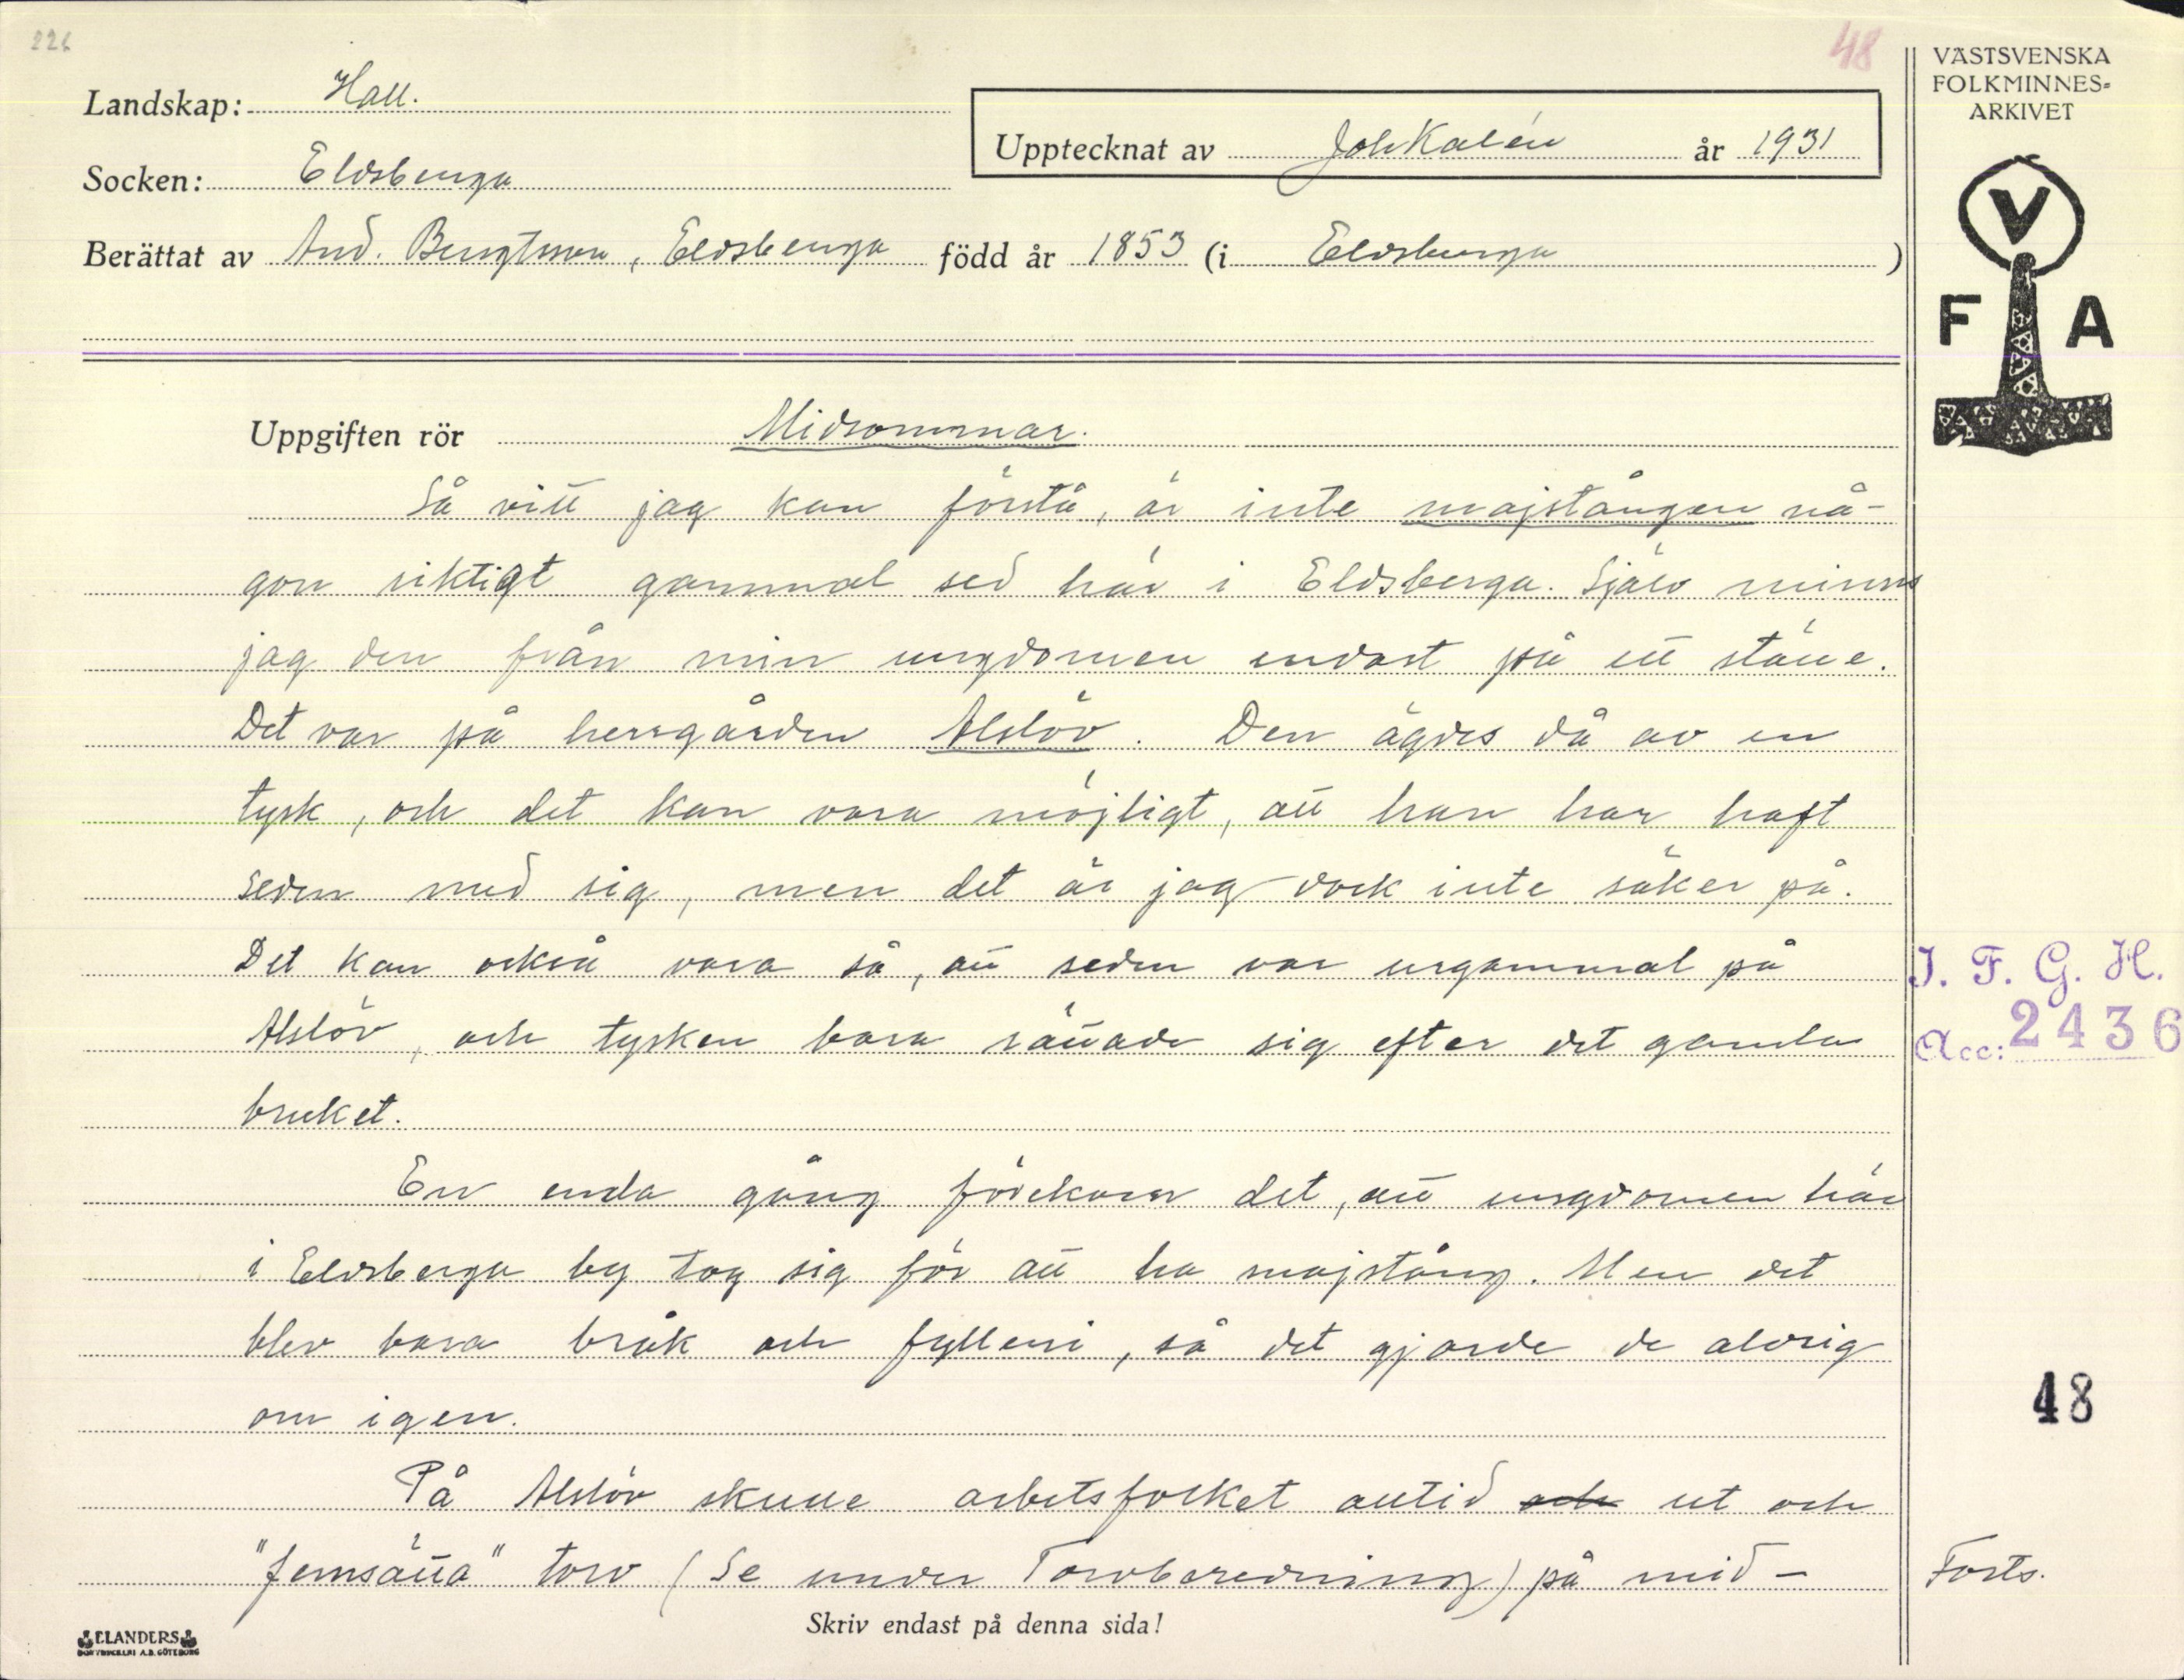 226
48
VÄSTSVENSKA
FOLKMINNES-
ARKIVET
Landskap: Hall.
Upptecknat av Joh Kalén år 1931
Socken: Eldsberga
Berättat av And. Bengtsson, Eldsberga född år 1853 (i Eldsberga )
V
F A
Uppgiften rör Midsommar.
Så vitt jag kan förstå, är inte majstången nå-
gon riktigt gammal sed här i Eldsberga. Själv minns
jag den från min ungdomen endast på ett ställe.
Det var på herrgården Alslöv. Den ägdes då av en
tysk, och det kan vara möjligt, att han har haft
seden med sig, men det är jag dock inte säker på.
Det kan också vara så, att seden var urgammal på
Alslöv, och tysken bara rättade sig efter det gamla
bruket.
En enda gång förekom det, att ungdomen här
i Eldsberga by tog sig för att ha majstång. Men det
blev bara bråk och fylleri, så det gjorde de aldrig
om igen.
På Alslöv skulle arbetsfolket alltid och ut och
"femsätta" torv (Se under Torvberedning) på mid-
J. F. G. H.
Acc: 2436
48
Forts.
Skriv endast på denna sida!
ELANDERS
BOKTRYCKERI A.B. GÖTEBORG